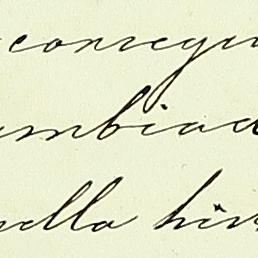 consegui
ambiad
uella his